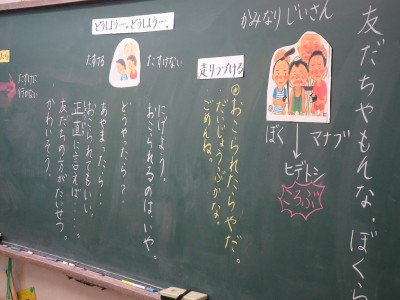 友だちやもんな、ぼくら
かみなりじいさん
ぼく
マナブ
ヒデトシ
ころぶ
走りつづける
おこられたらやだ。
だいじょうぶかな。
ごめんね。
どうしよう…。どうしよう…。
たすける
たすけない
にげよう。
おこられるのはいや。
どうやったら？
あやまったら…
おこられてもいい。
正直に言えば…。
友だちの方がたいせつ。
かわいそう。
たら
たすけに
行かない